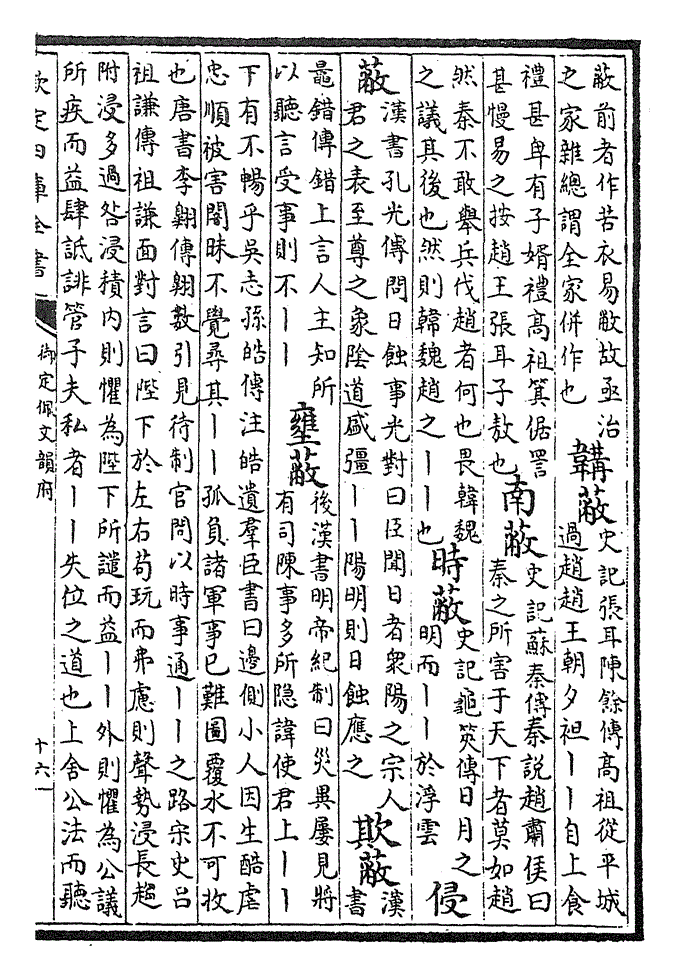 蔽前者作苦衣易敝故亟治
之家雜總謂全家併作也
韝蔽
史記張耳陳餘傳高祖從平城
過趙趙王朝夕袒丨丨自上食
禮甚卑有子婿禮高祖箕倨詈
甚慢易之按趙王張耳子敖也
南蔽
史記蘇秦傳秦說趙肅侯曰
秦之所害于天下者莫如趙
然秦不敢舉兵伐趙者何也畏韓魏
之議其後也然則韓魏趙之丨丨也
時蔽
史記龜筴傳日月之
明而丨丨於浮雲
侵
蔽
漢書孔光傳問日蝕事光對曰臣聞日者衆陽之宗人
君之表至尊之象陰道盛彊丨丨陽明則日蝕應之
欺蔽
漢
書
鼂錯傳錯上言人主知所
以聽言受事則不丨丨
壅蔽
後漢書明帝紀制曰災異屢見將
有司陳事多所隱諱使君上丨丨
下有不暢乎吳志孫皓傳注皓遺羣臣書曰邊側小人因生酷虐
忠順被害闇昧不覺尋其丨丨孤負諸軍事已難圖覆水不可收
也唐書李翱傳翱數引見待制官問以時事通丨丨之路宋史呂
祖謙傳祖謙面對言曰陛下於左右苟玩而弗慮則聲勢浸長趨
附浸多過咎浸積内則懼為陛下所譴而益丨丨外則懼為公議
所疾而益肆詆誹管子夫私者丨丨失位之道也上舍公法而聽
欽定四庫全書
御定佩文韻府
十六